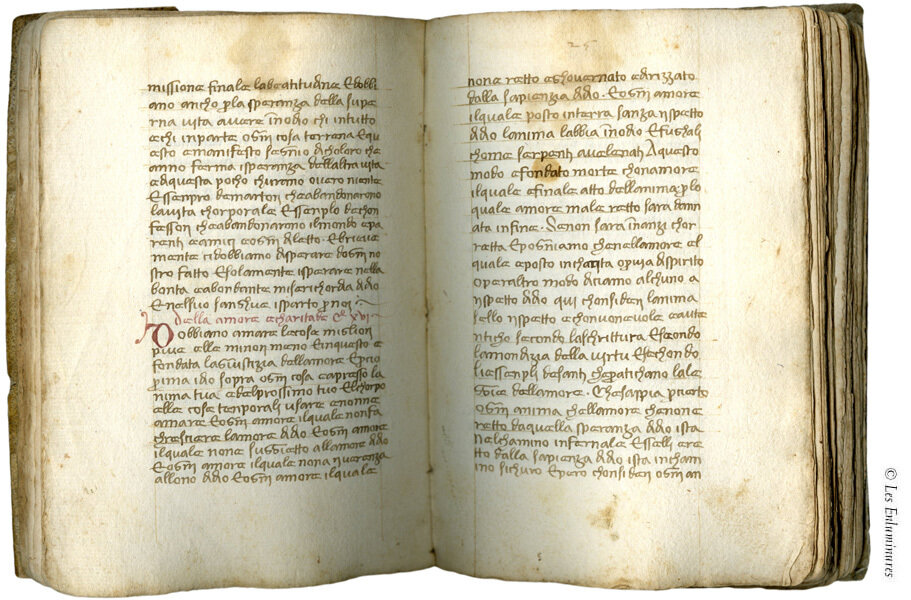 missione finale labeatitudine Edobbi
ano ancho p la speranza della supe
rna vita avere inodio chi intutto
echi inparte ogni cosa terrena Equ
esto emanifesto segnio dicholoro che
anno ferma isperanza dellaltra vita
ediquesta pocho churano overo niente
Essenpro demartori cheabandonarono
lavita chorporale Essenplo dechon
fessori cheabandonarono ilmondo epa
renti eamici eogni diletto. Ebrieve
mente tidobbiamo disperare dogni no
stro fatto Esolamente isperare nella
bonta eabondante miserichorda ddio
Enelsuo sanghue isparto p noi
Della amore echaritade C. XVI
Dobbiamo amare lecose migliori
piue elle minori meno Einquesto e
fondata lagiustizia dellamore Epio
prima idio sopra ogni cosa eapresso la
nima tua edelprossimo tuo Elchorpo
elle cose tenporali usare enonne
amare Eogni amore ilquale nonfa
chresciere lamore ddio Eogni amore
ilquale none suggietto allamore ddio
Eogni amore ilquale nona riverenza
allono ddio Eogni amore ilquale
25
none retto eghovernato edrizzato
dalla sapienza ddio. Eogni amore
ilquale posto interra sanza rispetto
ddio lanima labbia inodio Efughali
chome serpenti avelenati Aquesto
modo efondato morte chonamore
ilquale efinale atto dellanima p lo
quale amore male retto sara donn
ata infine. Senon sara inanzi chor
retta Epogniamo chenellamore el
quale eposto inchatita opuia dispirito
operaltro modo diciamo alchuno a
rispetto ddio qui chonsideri lanima
sello rispetto echonvonevole eaute
nticho secondo laschrittura Esecondo
lamondizia della virtu Esechondo
liessenpli desanti chepratichano lale
ggie dellamore. Chesappia pcierto
ogni anima chellamore chenone
retto daquella speranza ddio ista
nelchamino infernale Esselli ere
tto dalla sapienza ddio ista incham
ino sichuro Epero chonsideri ogni an
© Les Enluminures